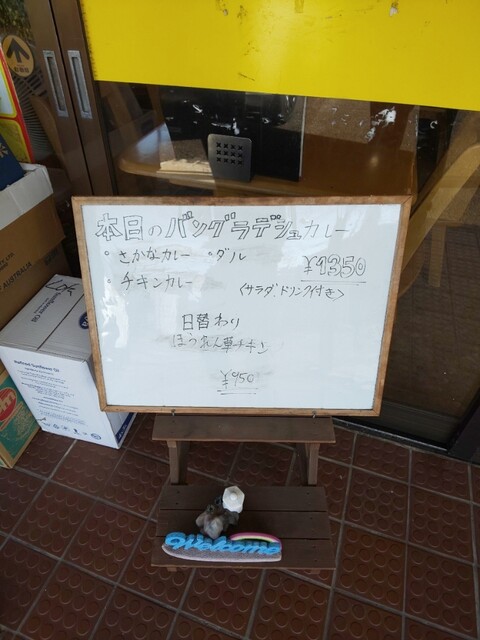 本日のバングラデシュカレー
・さかなカレー ・ダル
¥1350
・チキンカレー
<サラダ、ドリンク付き>
日替わり
ほうれん草チキン
¥950
Welcome
AUSTRALIA